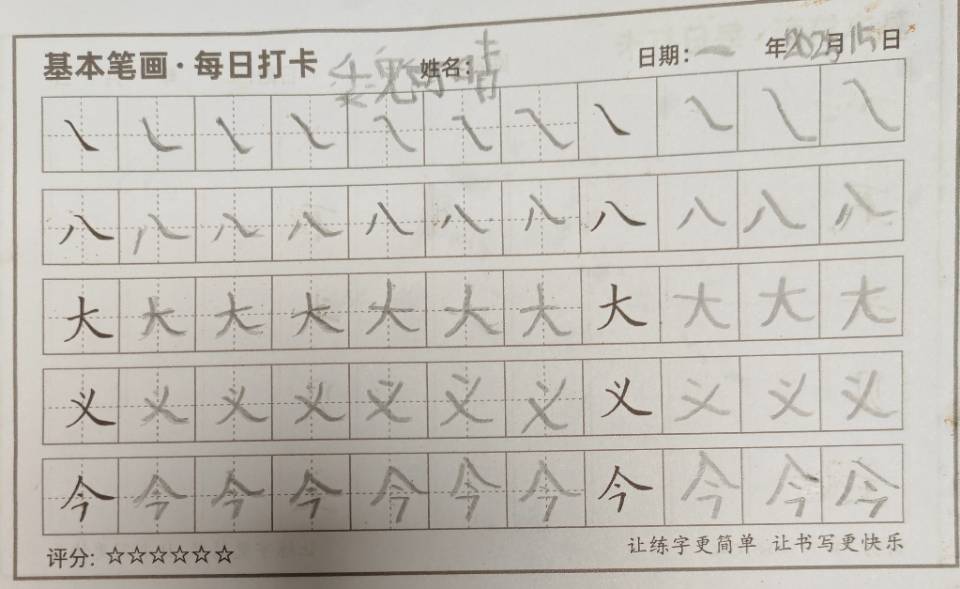 基本笔画·每日打卡 姓名: 魏 晴 日期: 年2025月15日
㇏ ㇏ ㇏ ㇏ ㇏ ㇏ ㇏ ㇏ ㇏ ㇏ ㇏
八 八 八 八 八 八 八 八 八 八 八
大 大 大 大 大 大 大 大 大 大 大
义 义 义 义 义 义 义 义 义 义 义
今 今 今 今 今 今 今 今 今 今 今
评分: ☆☆☆☆☆☆ 让练字更简单 让书写更快乐